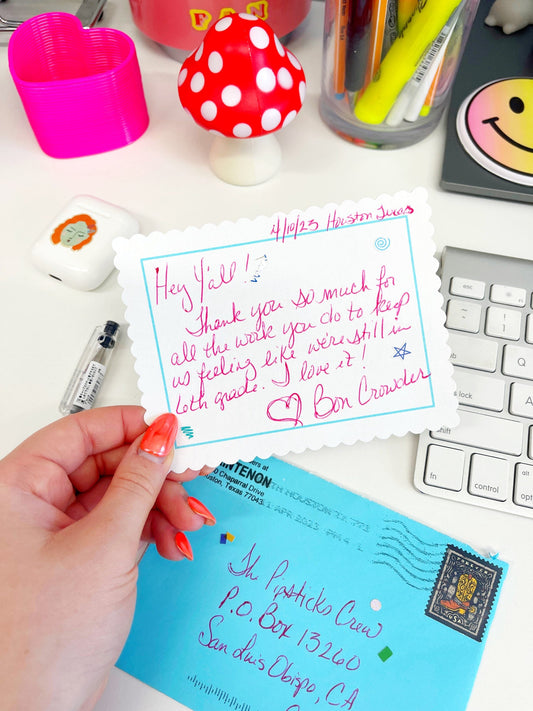 4/10/23 Houston Texas
Hey Y'all!
Thank you so much for
all the work you do to keep
us feeling like we're still in
6th grade. I love it!
♡ Bon Crowder
NTENON
Chaparral Drive
Houston, Texas 77043
NORTH HOUSTON TX 773
11 APR 2023 PM 4 L
The Pipsticks Crew
P.O. Box 13260
San Luis Obispo, CA
FOREVER
USA
esc
1
Q
A
Z
fn
control
option